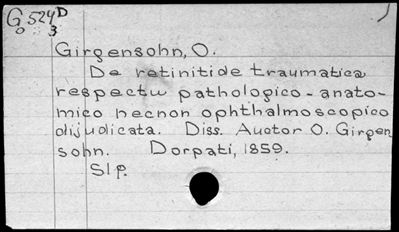 G 524D
0 :: 3
Girgensohn, O.
De retinitide traumatica
respectu pathologico-anato-
mico necnon ophthalmoscopico
dijudicata. Diss. Auctor O. Girgen
sohn. Dorpati, 1859.
Slp.